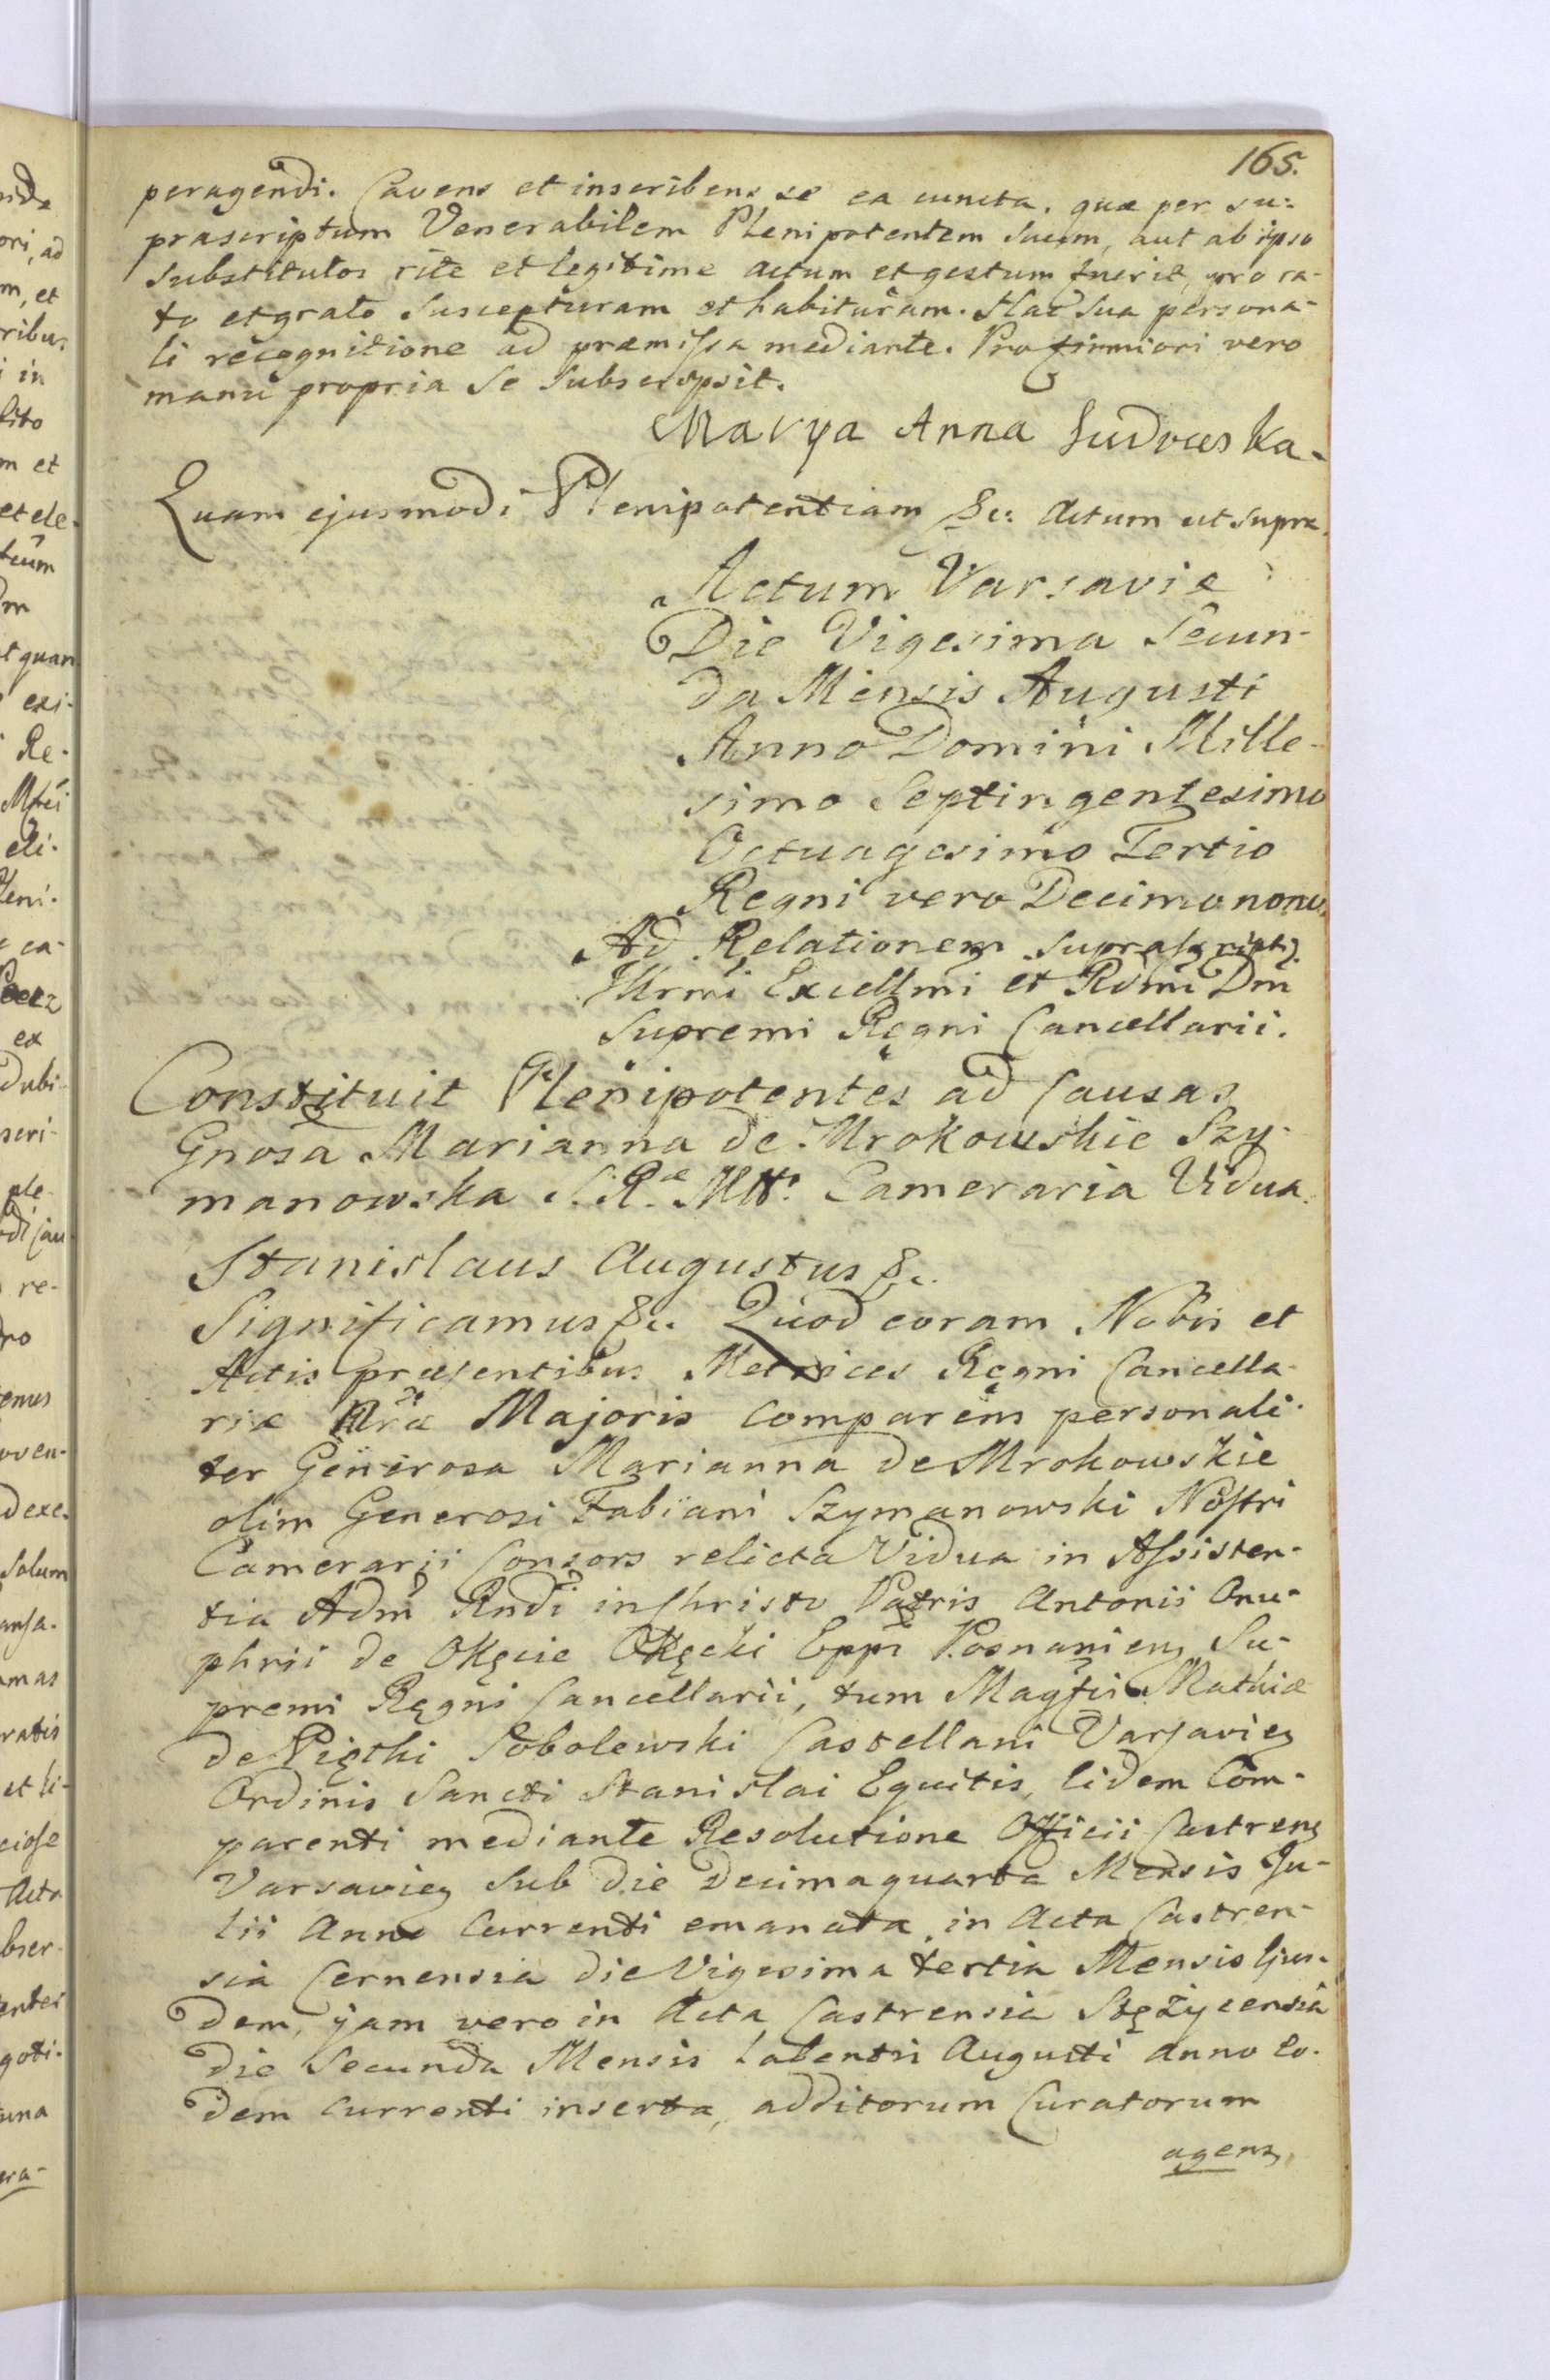 165.
peragendi. Cavens et inscribens se ea cuncta, quæ per su:
prascriptum Venerabilem Plenipotentem suum, aut ab ipso
substitutos rite et legitime actum et gestum fuerit, pro ra-
to et grato suscepturam et habituram. Hac sua persona-
li recognitione ad præmissa mediante. Pro firmiori vero
manu propria se subscripsit.
Marya Anna
Quam ejusmodi Plenipotentiam &c: Actum ut supra.
Actum Varsaviæ
Die Vigesima Secun-
da Mensis Augusti
Anno Domini Mille-
simo Septingentesimo
Octuagesimo Tertio
Regni vero Decimo nono.
Ad Relationem suprascripti
Illrmi Excellmi et Rdmi Dni
Supremi Regni Cancellarii.
Constituit Plenipotentes ad Causas
Gnosa Marianna de Mrokowskie Szy-
manowska S. Ræ Mttis Cameraria Vidua.
Stanislaus Augustus &c.
Significamus &c. Quod coram Nobis et
Actis præsentibus Metrices Regni Cancella-
riæ Nræ Majoris comparens personali-
ter Generosa Marianna de Mrokowskie
olim Generosi Fabiani Szymanowski Nostri
Camerarii Consors relicta Vidua in Assisten-
tia Adm Rndi in Christo Patris Antonii Onu-
phrii de Okęcie Okęcki Eppi Posnanien Su-
premi Regni Cancellarii, tum Magfci Mathiæ
de Piętki Sobolewski Castellani Varsavien
Ordinis Sancti Stanislai Equitis, Eidem Com-
parenti mediante Resolutione Officii Castrens
Varsavien sub die Decima quarta Mensis Ju-
lii Anno Currenti emanata, in Acta Castren-
sia Cernensia die Vigesima tertia Mensis Ejus-
dem, jam vero in Acta Castrensia Stężycensia
die Secunda Mensis labentis Augusti Anno eo-
dem currenti inserta, additorum Curatorum
agens,